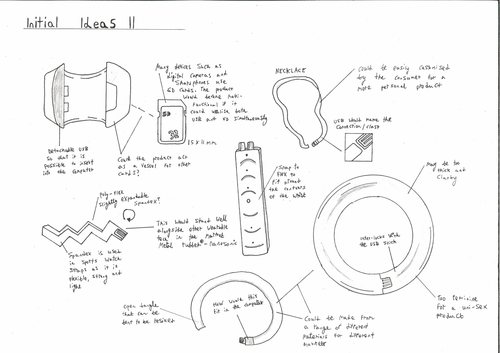 Initial Ideas II
Many devices such as
digital cameras and
smartphones use
SD cards. The product
would become multi-
functional if it
could utilise both
USB and SD simultaneously
SD
32
15 x 11 mm
Detachable USB
so that it is
possible to insert
into the computer
Could the product act
as a vessel for other
cards?
NECKLACE
Could be easily customised
by the consumer for a
more personal product
USB would make the
connection/clasp
Poly-flex
slightly expandable
Spandex?
This would start well
alongside other wearable
tech in the
Metal Rubber
Spandex is used
in sports watch
straps as it is
flexible, strong and
light
Snap to
flex to
fit around
the contours
of the wrist
May be too
thick and
clunky
Inter-locks with
the USB stick
Too feminine
for a uni-sex
product
open bangle
that can be
bent to be
How would this
fit in the computer
Could be made from
a range of different
materials for different
markets